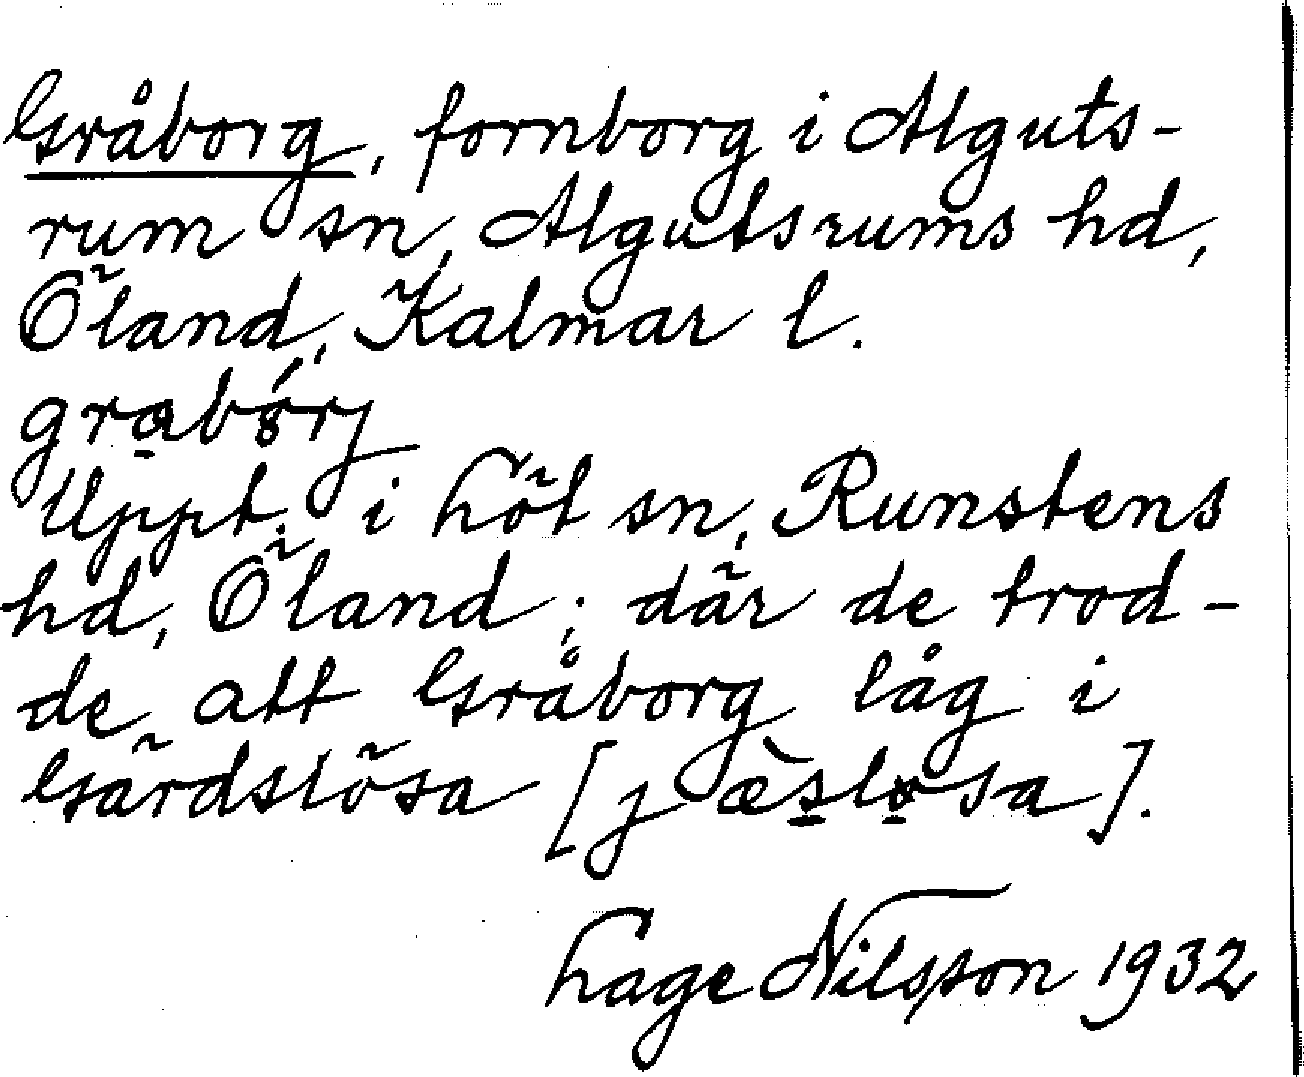 Gråborg, fornborg i Alguts-
rum sn, Algutsrums hd,
Öland, Kalmar l.
Uppt. i Löt sn, Runstens
hd, Öland; där de trod-
de att Gråborg låg i
Gärdslösa [jæ̀s̱lø̱sa].
Lage Nilsson 1932